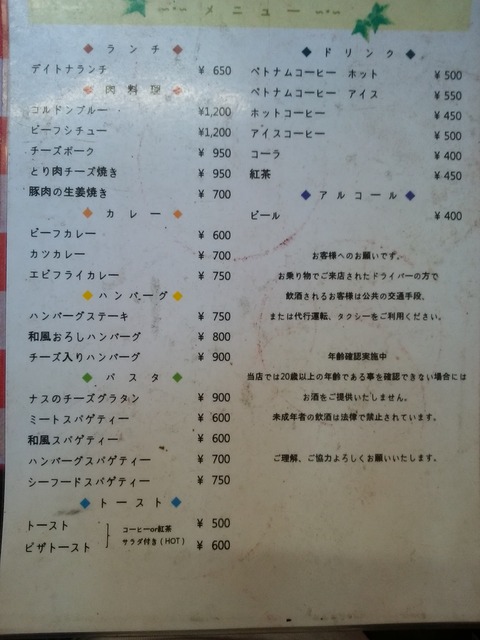 メニュー
◆ ランチ ◆
デイトナランチ ¥ 650
◆ 肉料理 ◆
コルドンブルー ¥1,200
ビーフシチュー ¥1,200
チーズポーク ¥ 950
とり肉チーズ焼き ¥ 950
豚肉の生姜焼き ¥ 700
◆ カレー ◆
ビーフカレー ¥ 600
カツカレー ¥ 700
エビフライカレー ¥ 750
◆ ハンバーグ ◆
ハンバーグステーキ ¥ 750
和風おろしハンバーグ ¥ 800
チーズ入りハンバーグ ¥ 900
◆ パスタ ◆
ナスのチーズグラタン ¥ 900
ミートスパゲティー ¥ 600
和風スパゲティー ¥ 600
ハンバーグスパゲティー ¥ 700
シーフードスパゲティー ¥ 750
◆ トースト ◆
トースト ¥ 500
ピザトースト ¥ 600
コーヒーor紅茶
サラダ付き(HOT)
◆ ドリンク ◆
ベトナムコーヒー ホット ¥ 500
ベトナムコーヒー アイス ¥ 550
ホットコーヒー ¥ 450
アイスコーヒー ¥ 500
コーラ ¥ 400
紅茶 ¥ 450
◆ アルコール ◆
ビール ¥ 400
お客様へのお願いです。
お乗り物でご来店されたドライバーの方で
飲酒されるお客様は公共の交通手段、
または代行運転、タクシーをご利用ください。
年齢確認実施中
当店では20歳以上の年齢である事を確認できない場合には
お酒をご提供いたしません。
未成年者の飲酒は法律で禁止されています。
ご理解、ご協力よろしくお願いいたします。